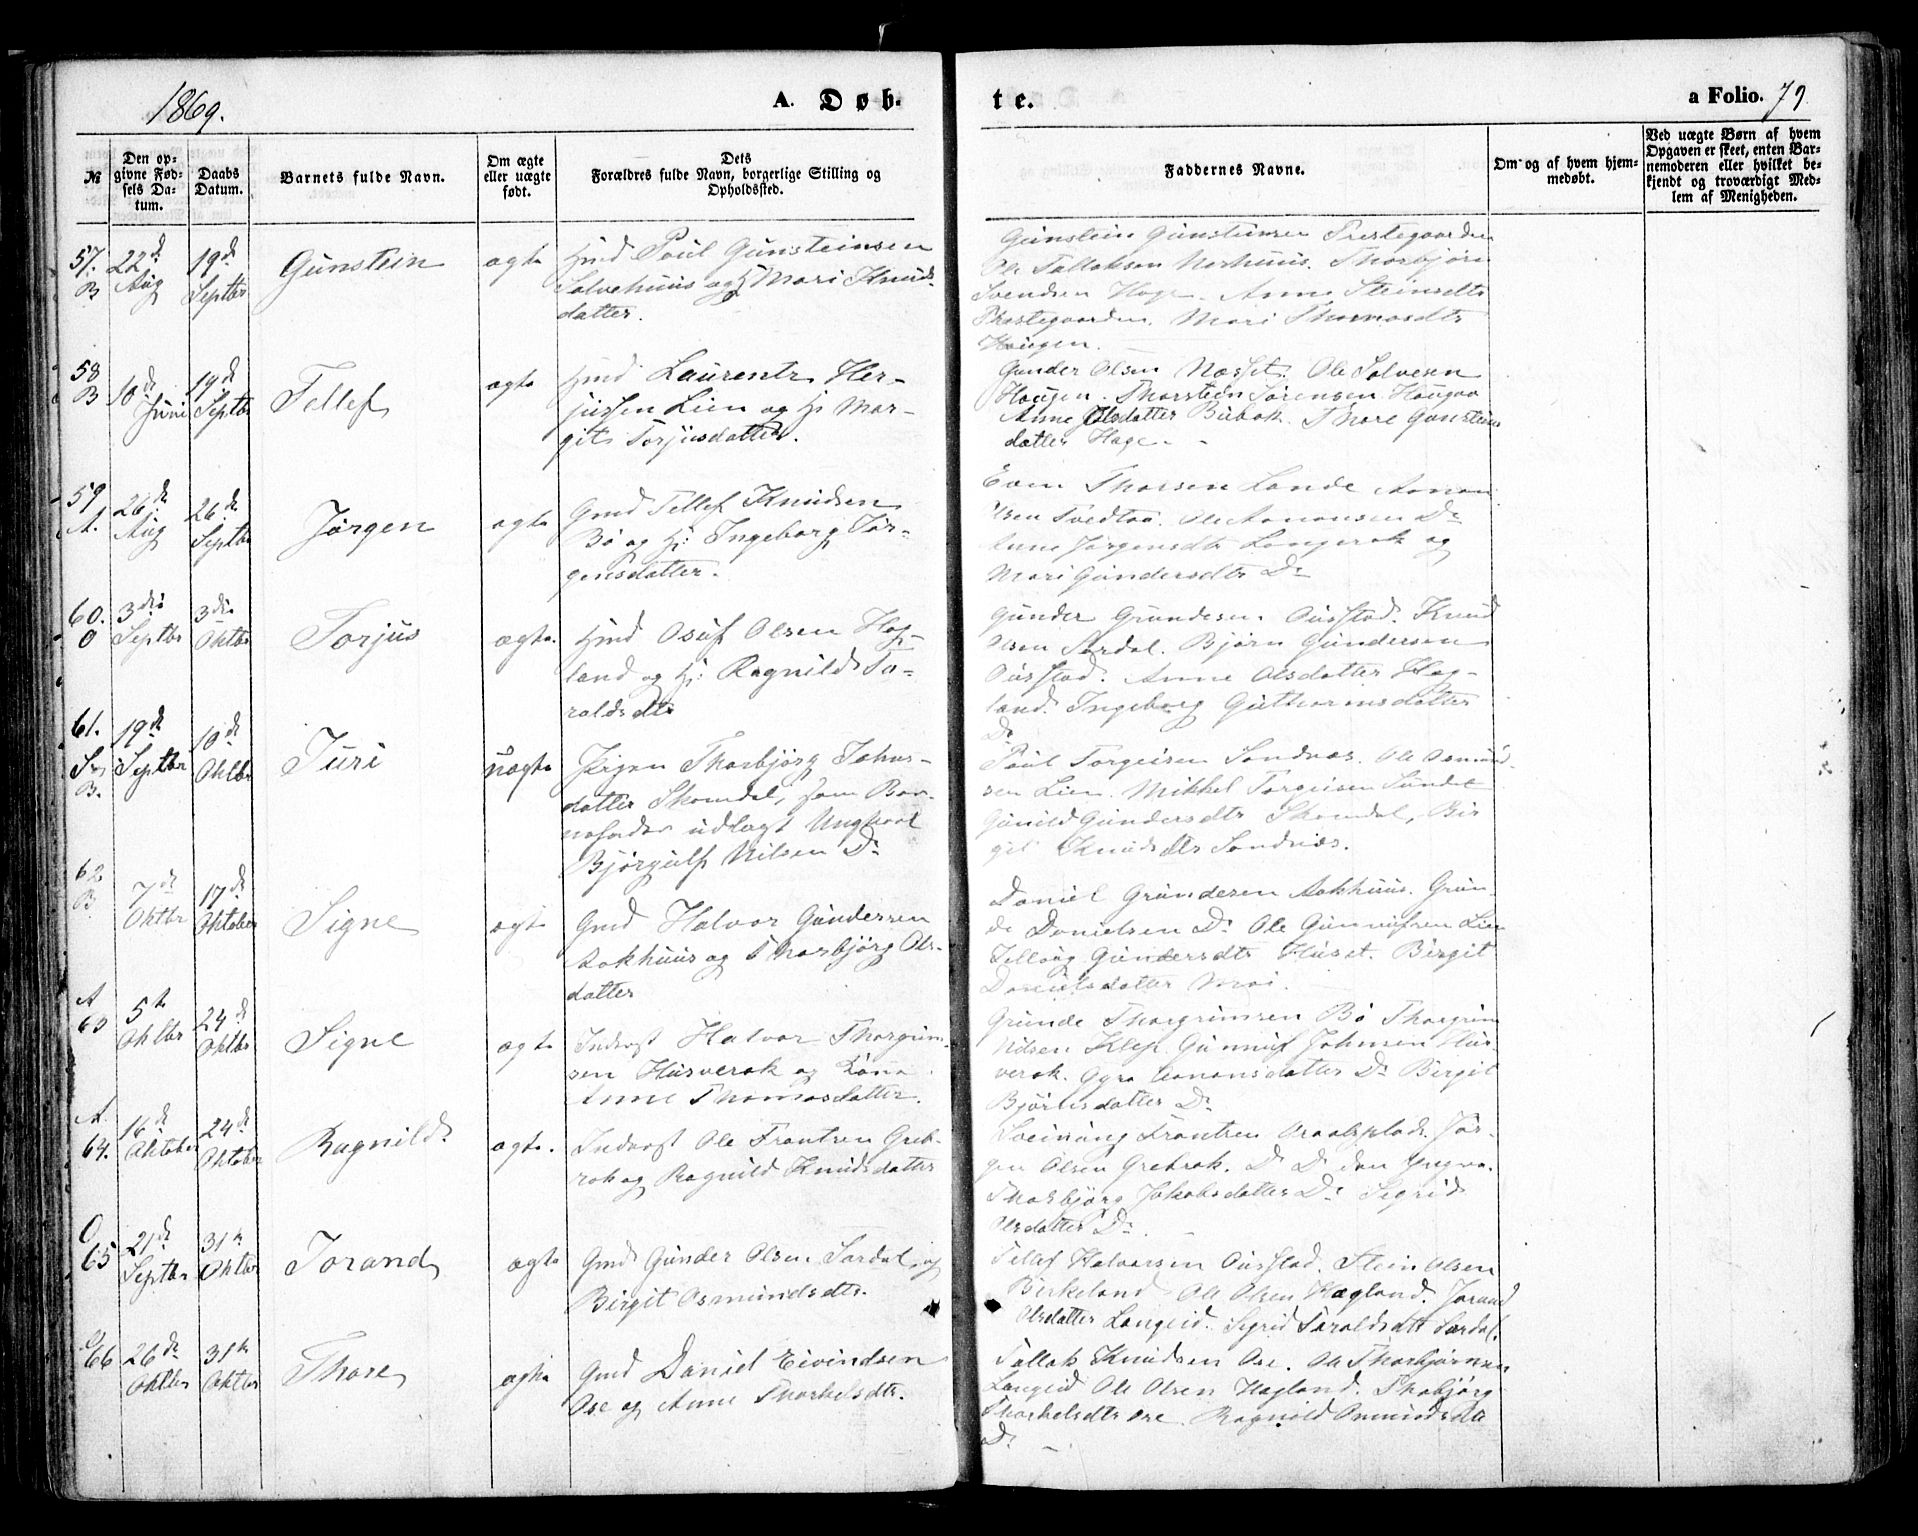 1869.
A. Døb-
te.
a Folio. 79
№
Den op-
givne Fød-
sels Da-
tum.
Daabs
Datum.
Barnets fulde Navn.
Om ægte
eller uægte
født.
Dets
Forældres fulde Navn, borgerlige Stilling og
Opholdssted.
Faddernes Navne.
Om og af hvem hjem-
medøbt.
Ved uægte Børn af hvem
Opgaven er skeet, enten Bar-
nemoderen eller hvilket be-
kjendt og troværdigt Med-
lem af Menigheden.
57. B
22de Aug
19de Septbr
Gunstein
ægte
Hmd Poul Gunsteinsen
Solvehuus og Hj Mari Knuds-
datter.
Gunstein Gunsteinsen Prestegaarden
Ole Tallaksen Norhuus. Thorbjörn
Svendsen Hage. Anne Steinsdtr
Prestegaarden. Mari Thomasdtr
Haugen.
58 B
10de Juni
19de Septbr
Tellef
ægte
Hmd Laurents Her-
jussen Lien og Hj Mar-
git Torjusdatter.
Gunder Olsen Næsset. Ole Solvesen
Haugen. Thorstein Sörensen Haugaa
Anne Olsdatter Bubak. Thore Gunsteins
datter Hage.
59 A.
26de Aug
26de Septbr
Jörgen
ægte
Gmd Tellef Knudsen
Bö og Hj: Ingeborg Jör-
gensdatter.
Even Thorsen Lande Aanon
Olsen Tvedtaa. Ole Aanonsen Do
Anne Jörgensdtr Langerak og
Mari Gundersdtr Do
60. O
3die Septbr
3die Oktbr
Torjus
ægte.
Hmd Osuf Olsen Hag-
land og Hj: Ragnild Ta-
raldsdtr
Gunder Grundesen Ousstad. Knud
Olsen Sordal. Björn Gundersen
Ousstad. Anne Olsdatter Hag-
land. Ingeborg Guthormsdatter
Do
61. B.
19de Septbr
10de Oktbr
Turi
uægte
Pigen Thorbjörg Johns-
datter Skomdal, som Bar-
nefader udlagt Ungkarl
Björgulf Nilsen Do
Poul Torgeisen Sondnæs. Ole Osmund-
sen Lien. Mikkel Torgeisen Sundet
Gunild Gundersdtr Skomdal, Bir
git Knudsdtr Sondnæs.
62 B
7de Oktbr
17de Oktober
Signe
ægte
Gmd Halvor Gundersen
Aakhuus og Thorbjörg Ols-
datter
Daniel Grundesen Aakhuus. Grun
de Danielsen Do Ole Gunnufsen Lien
Tellaug Gundersdtr Huset. Birgit
Danielsdatter Moi.
A 63
5te Oktbr
24de Oktbr
Signe
ægte
Inderst Halvor Thorgrim-
sen Husverak og Kona
Anne Thomasdatter.
Grunde Thorgrimsen Bö Thorgrim
Nilsen Klep. Gunnuf Johnsen Hus-
verak. Gyro Aanonsdatter Do Birgit
Björnsdatter Do
A. 64.
16de Oktober
24de Oktober
Ragnild
ægte.
Inderst Ole Frantsen Greb-
rok og Ragnild Knudsdatter
Sveinung Frantsen Jör-
gen Olsen Grebrok. Do Do den Yngre.
Thorbjörg Jakobsdatter Do Sigrid
Olsdatter Do
O 65
21de Septbr
31te Oktbr
Torand
ægte
Gmd Gunder Olsen Sordal og
Birgit Osmundsdtr.
Tellef Halvorsen Ousstad. Stein Olsen
Birkeland Ole Olsen Hagland. Jorand
Olsdatter Langeid. Sigrid Taraldsdtt Sordal.
O 66
26de Oktbr
31te Oktbr
Thore
ægte
Gmd Daniel Eivindsen
Ose og Anne Thorkelsdtr.
Tallak Knudsen Ose. Ole Thorbjörnsen
Langeid Ole Olsen Hagland. Thobjörg
Thorkelsdtr Ose. Ragnild Osmundsdtt
Do